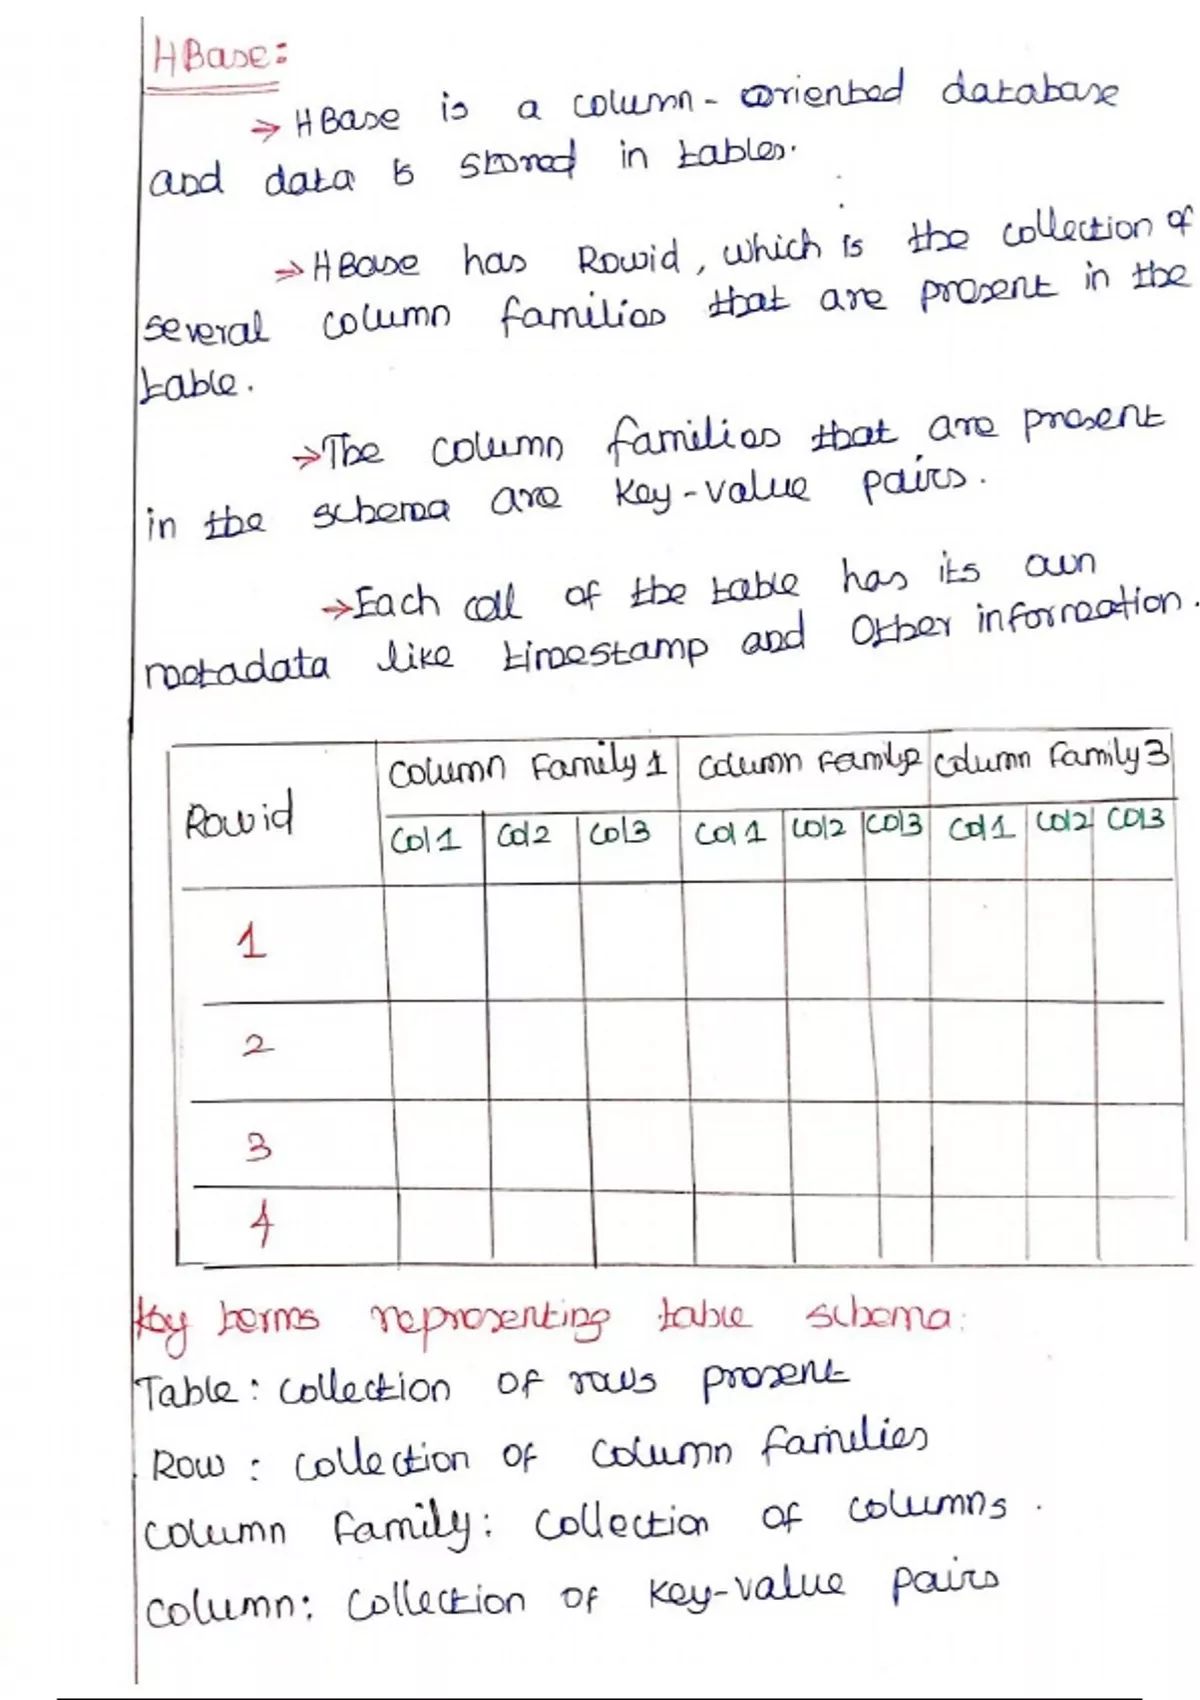 HBase:
→ HBase is a column-oriented database
and data is stored in tables.
→ HBase has Rowid, which is the collection of
several column families that are present in the
table.
→ The column families that are present
in the schema are key-value pairs.
→ Each cell of the table has its own
metadata like timestamp and other information.
Rowid | Column Family 1 | Column Family 2 | Column Family 3
Col 1 | Col 2 | Col 3 | Col 1 | Col 2 | Col 3 | Col 1 | Col 2 | Col 3
1
2
3
4
Key terms representing table schema:
Table: Collection of rows present
Row: Collection of column families
Column Family: Collection of columns.
Column: Collection of key-value pairs